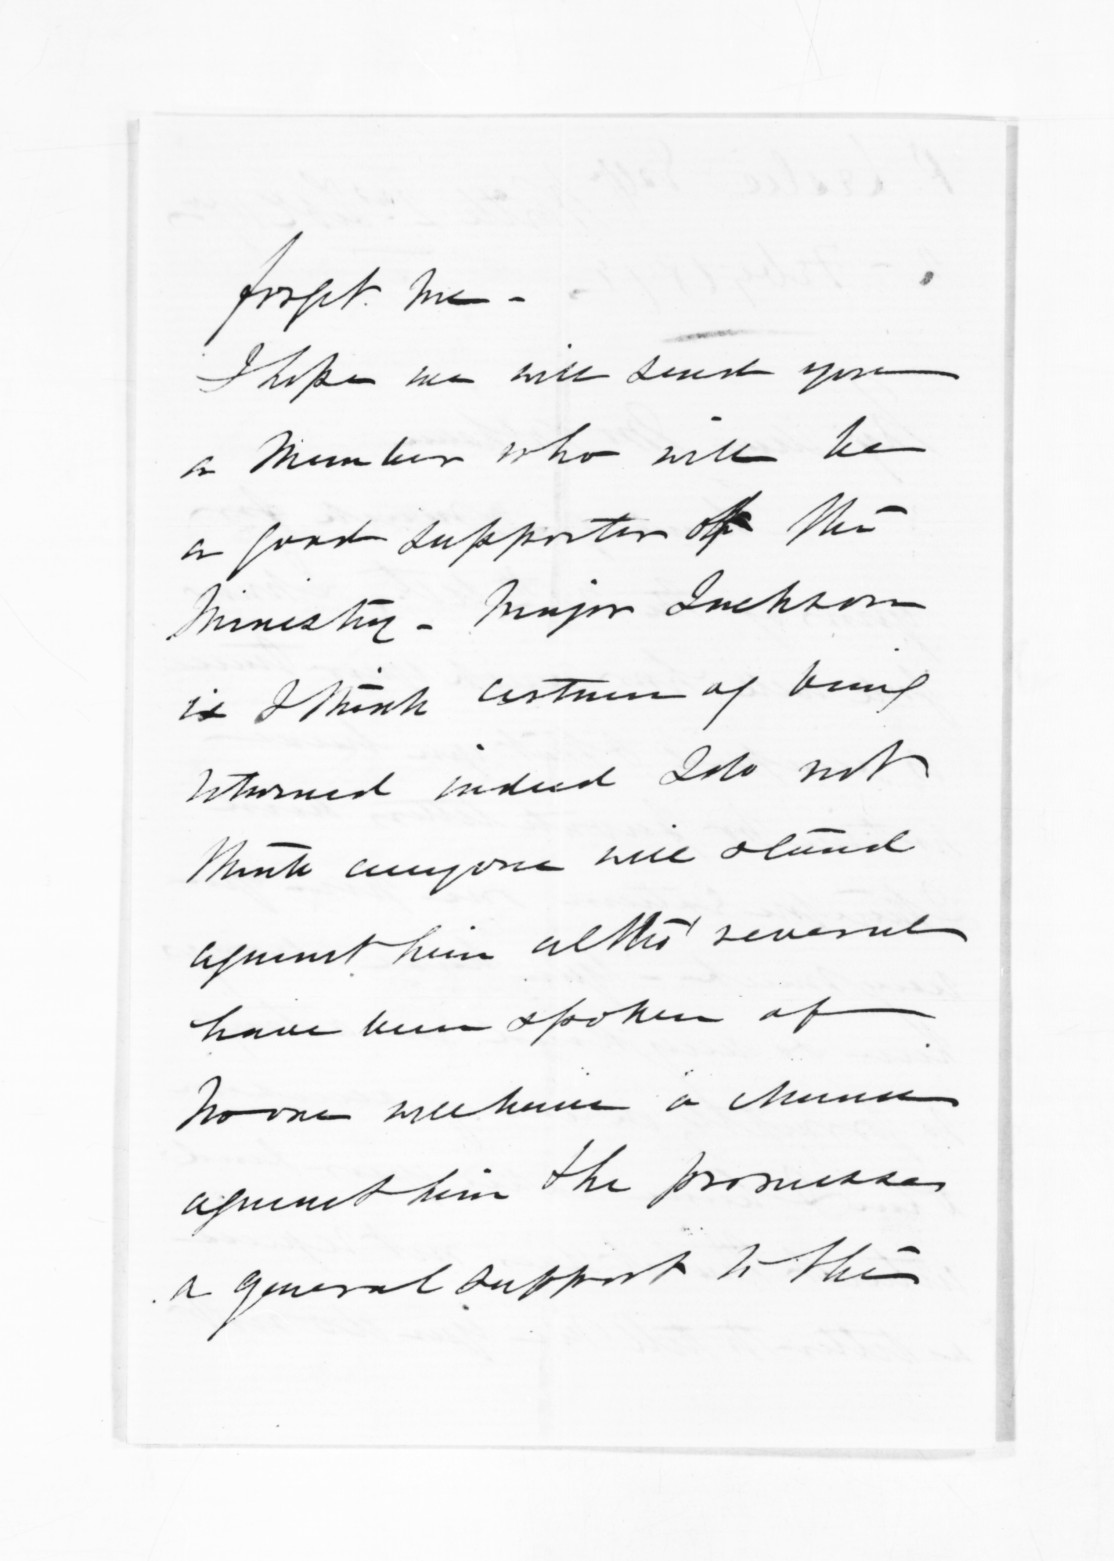 forget me -
I hope we will send you
a Member who will be
a good supporter of the
Ministry - Major Jackson
is I think certain of being
returned indeed I do not
think anyone will stand
against him altho' several
have been spoken of
No one will have a chance
against him the promises
a general support to the